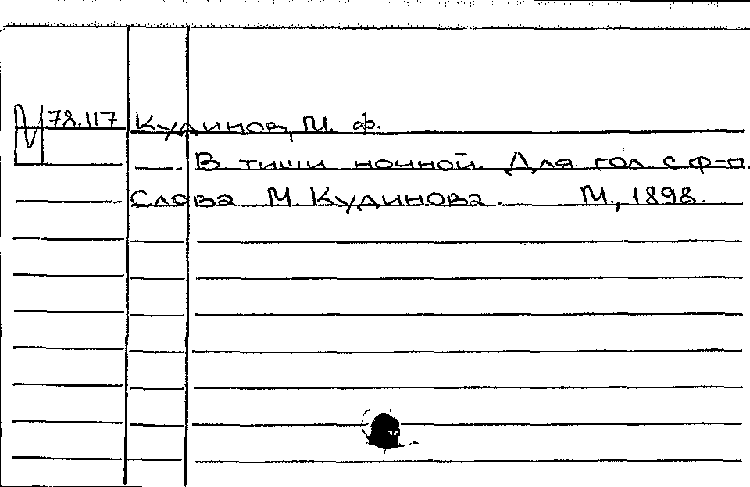 78.117 Кудинов, М. Ф.
В тиши ночной. Для гол с ф-п.
Слова М. Кудинова. М., 1898.